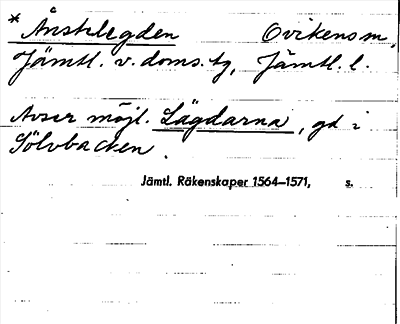 * Ånstlegden Ovikens sn,
Jämtl. v. doms. tg, Jämtl. l.
Avser möjl. Lägdarna, gd i
Sölvbacken.
Jämtl. Räkenskaper 1564–1571, s.